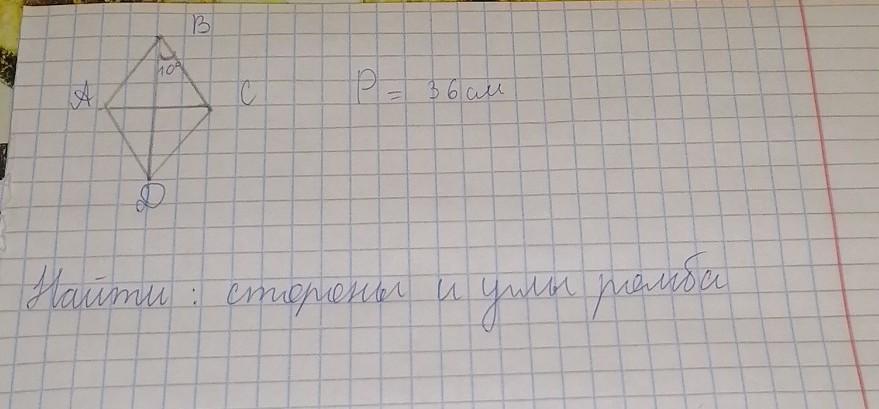 B
10°
A
C
P = 36 см
D
Найти: стороны и углы ромба